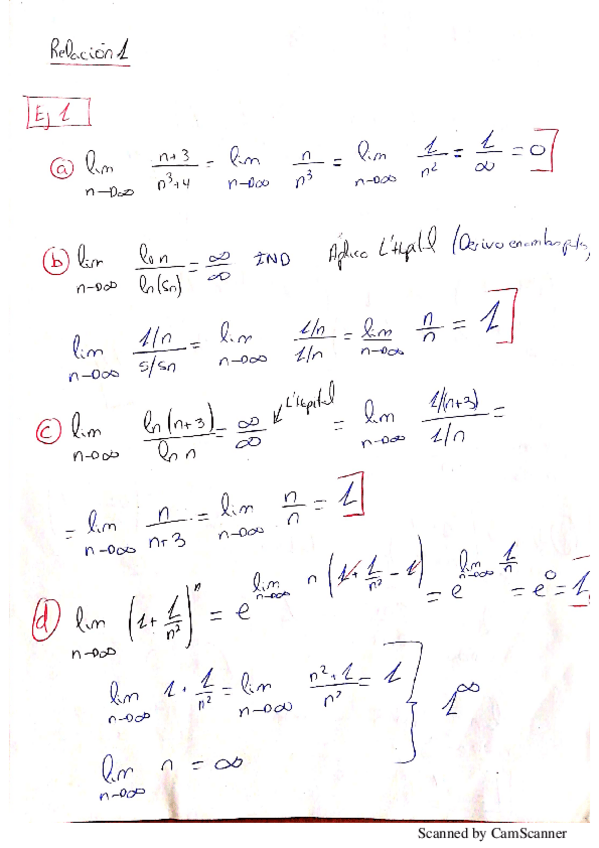 Relación 1
Ej 1
a) lim n→∞ (n+3)/(n³+4) = lim n→∞ n/n³ = lim n→∞ 1/n² = 1/∞ = 0
b) lim n→∞ ln n/ln(5n) = ∞/∞ IND Aplico L'Hopital (Derivo en ambas partes
lim n→∞ (1/n)/(5/5n) = lim n→∞ (1/n)/(1/n) = lim n→∞ n/n = 1
c) lim n→∞ ln(n+3)/ln n = ∞/∞ ↙ L'Hopital = lim n→∞ (1/(n+3))/(1/n) =
= lim n→∞ n/(n+3) = lim n→∞ n/n = 1
d) lim n→∞ (1+1/n²)ⁿ = e^(lim n→∞ n(1+1/n²-1)) = e^(lim n→∞ 1/n) = e⁰ = 1
lim n→∞ 1+1/n² = lim n→∞ (n²+1)/n² = 1 } 1^∞
lim n→∞ n = ∞
Scanned by CamScanner